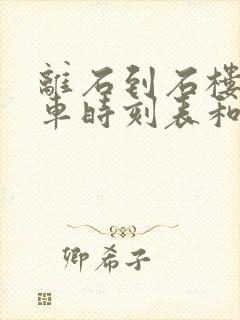 離石到石樓
車時刻表和
卿希子